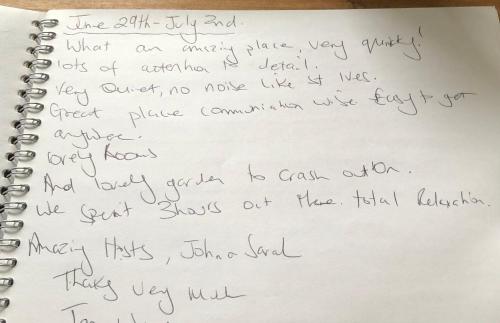 June 29th - July 2nd.
What an amazing place, very quirky!
lots of attention to detail.
Very Quiet, no noise like St Ives.
Great place communication wise Easy to get
anywhere.
lovely Rooms
And lovely garden to crash out on.
We spent 3 hours out there. total Relaxation.
Amazing Hosts, John & Sarah
Thanks very much